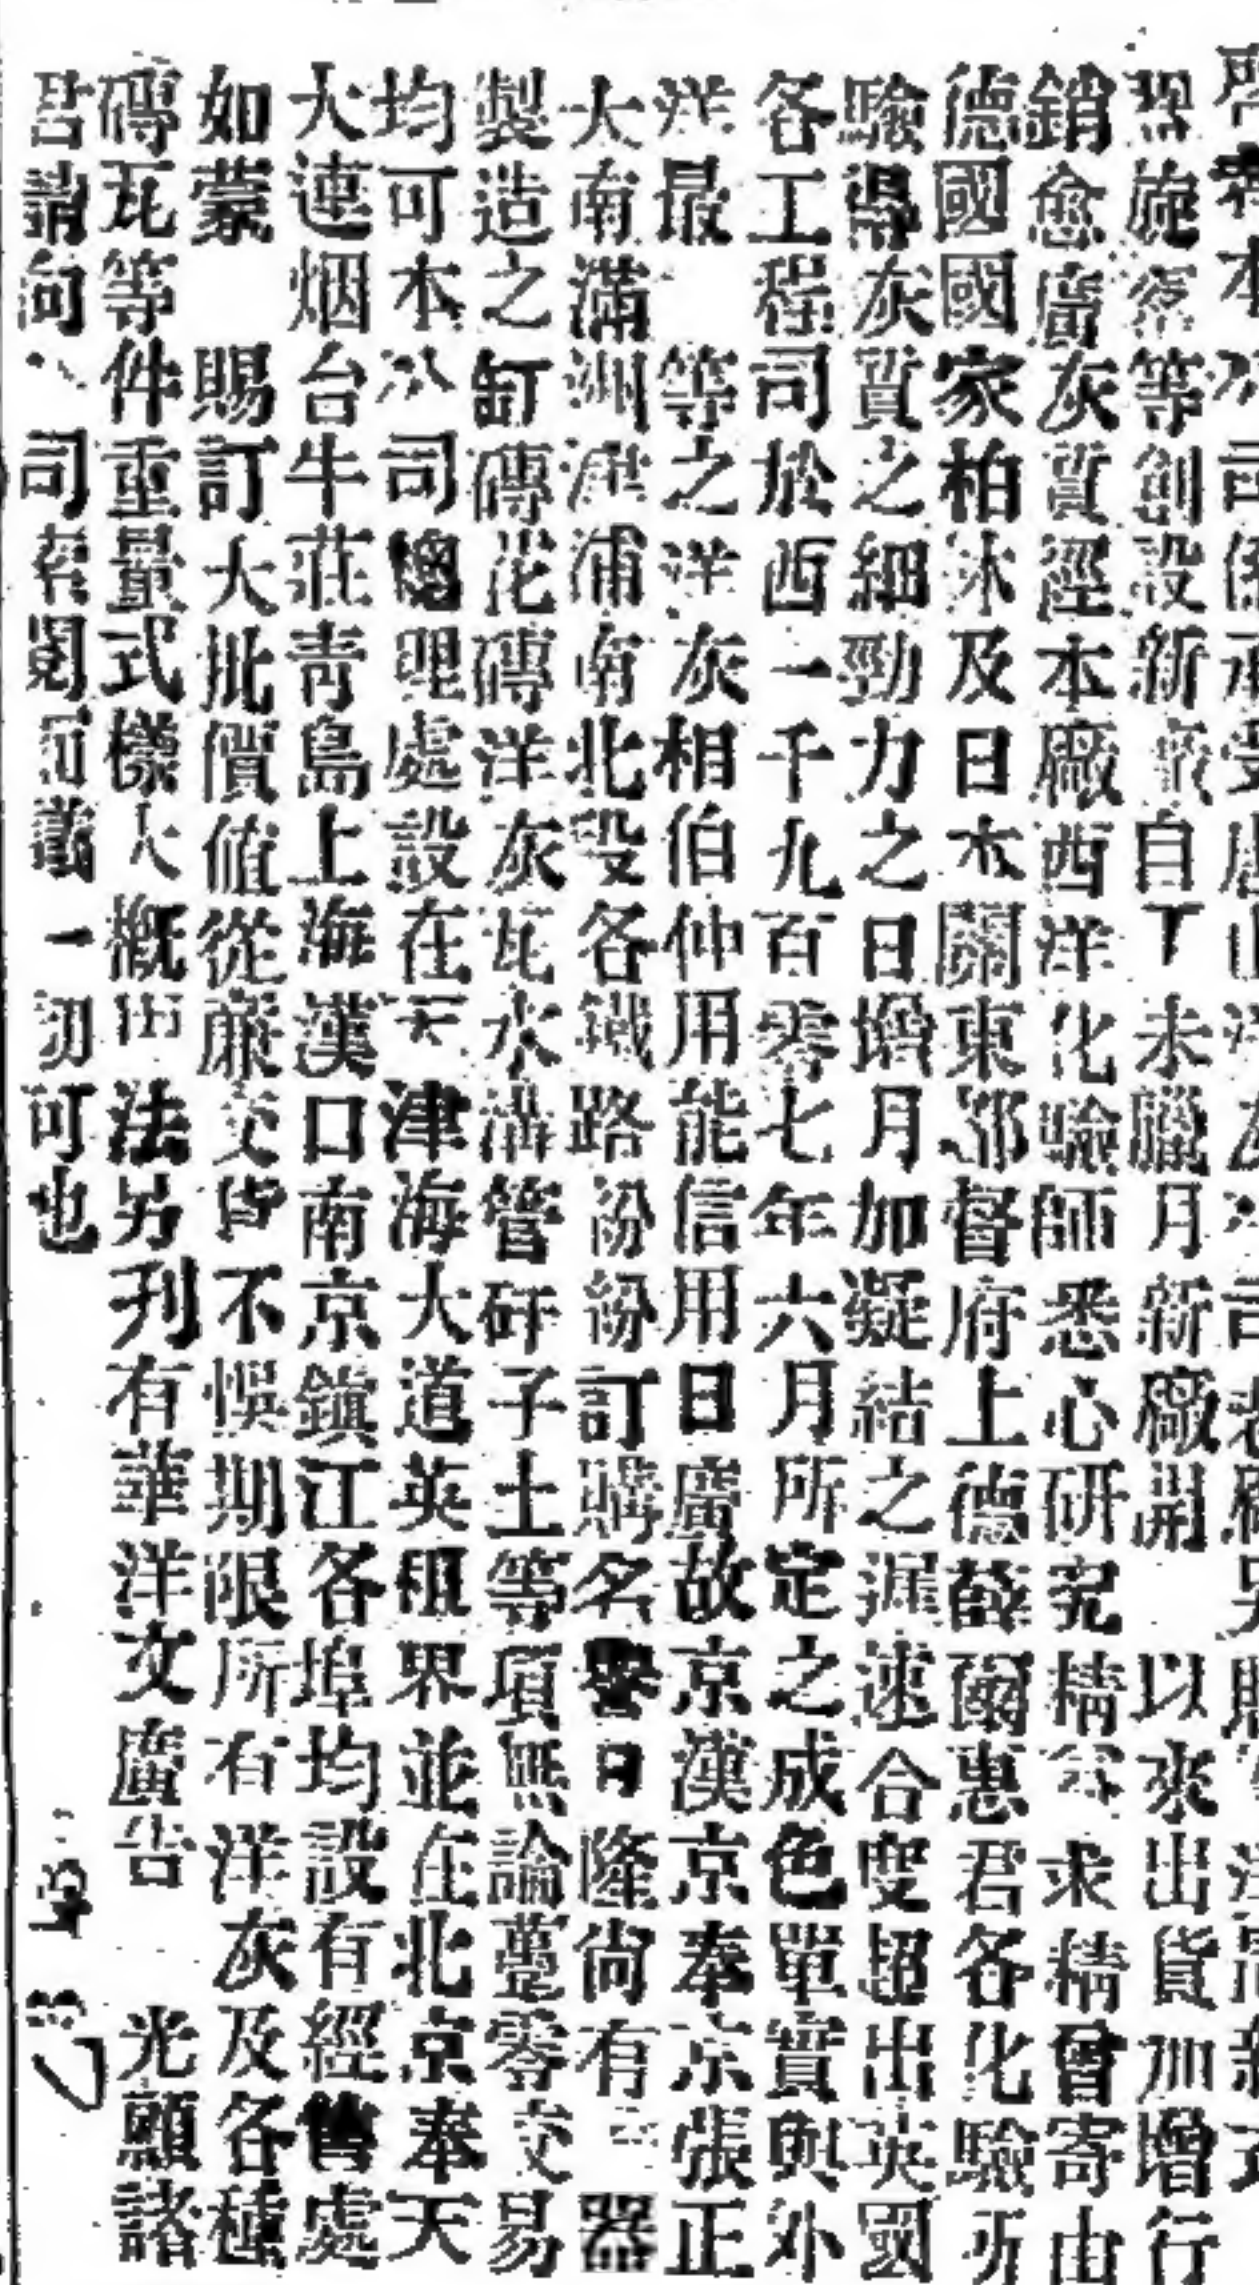 啓者本公司係承受唐山洋灰公司老廠另購
器旋窰等創設新廠自丁未臘月新廠開 以來出貨加增行
銷愈廣灰質經本廠西洋化驗師悉心研究精益求精曾寄由
德國國家柏林及日本關東都督府上德薛爾惠君各化驗所
驗得灰質之細勁力之日增月加凝結之遲速合度超出英國
各工程司於西一千九百零七年六月所定之成色單實與外
洋最 等之洋灰相伯仲用能信用日廣故京漢京奉京張正
太南滿洲津浦南北段各鐵路紛紛訂購名譽日隆尚有 器
製造之缸磚花磚洋灰瓦水溝管矸子土等項無論躉零交易
均可本公司總理處設在天津海大道英租界並在北京奉天
大連烟台牛莊青島上海漢口南京鎮江各埠均設有經售處
如蒙 賜訂大批價值從廉交貨不悞期限所有洋灰及各種
磚瓦等件重量式樣大概用法另刊有華洋文廣告 光顧諸
君請向公司索閱可識一切可也